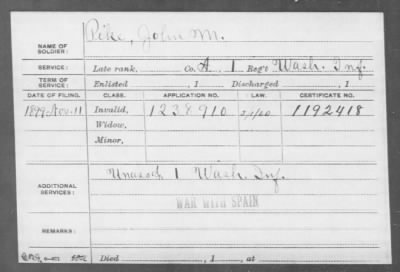 NAME OF SOLDIER: Pike, John M.
SERVICE: Late rank, Co. A, 1 Reg't Wash. Inf.
TERM OF SERVICE: Enlisted , 1 Discharged , 1
DATE OF FILING. CLASS. APPLICATION NO. LAW. CERTIFICATE NO.
1899-Nov. 11 Invalid, 1238910 1192418
Widow,
Minor,
ADDITIONAL SERVICES: Unassch 1 Wash. Inf.
WAR WITH SPAIN
REMARKS:
Died , 1 , at